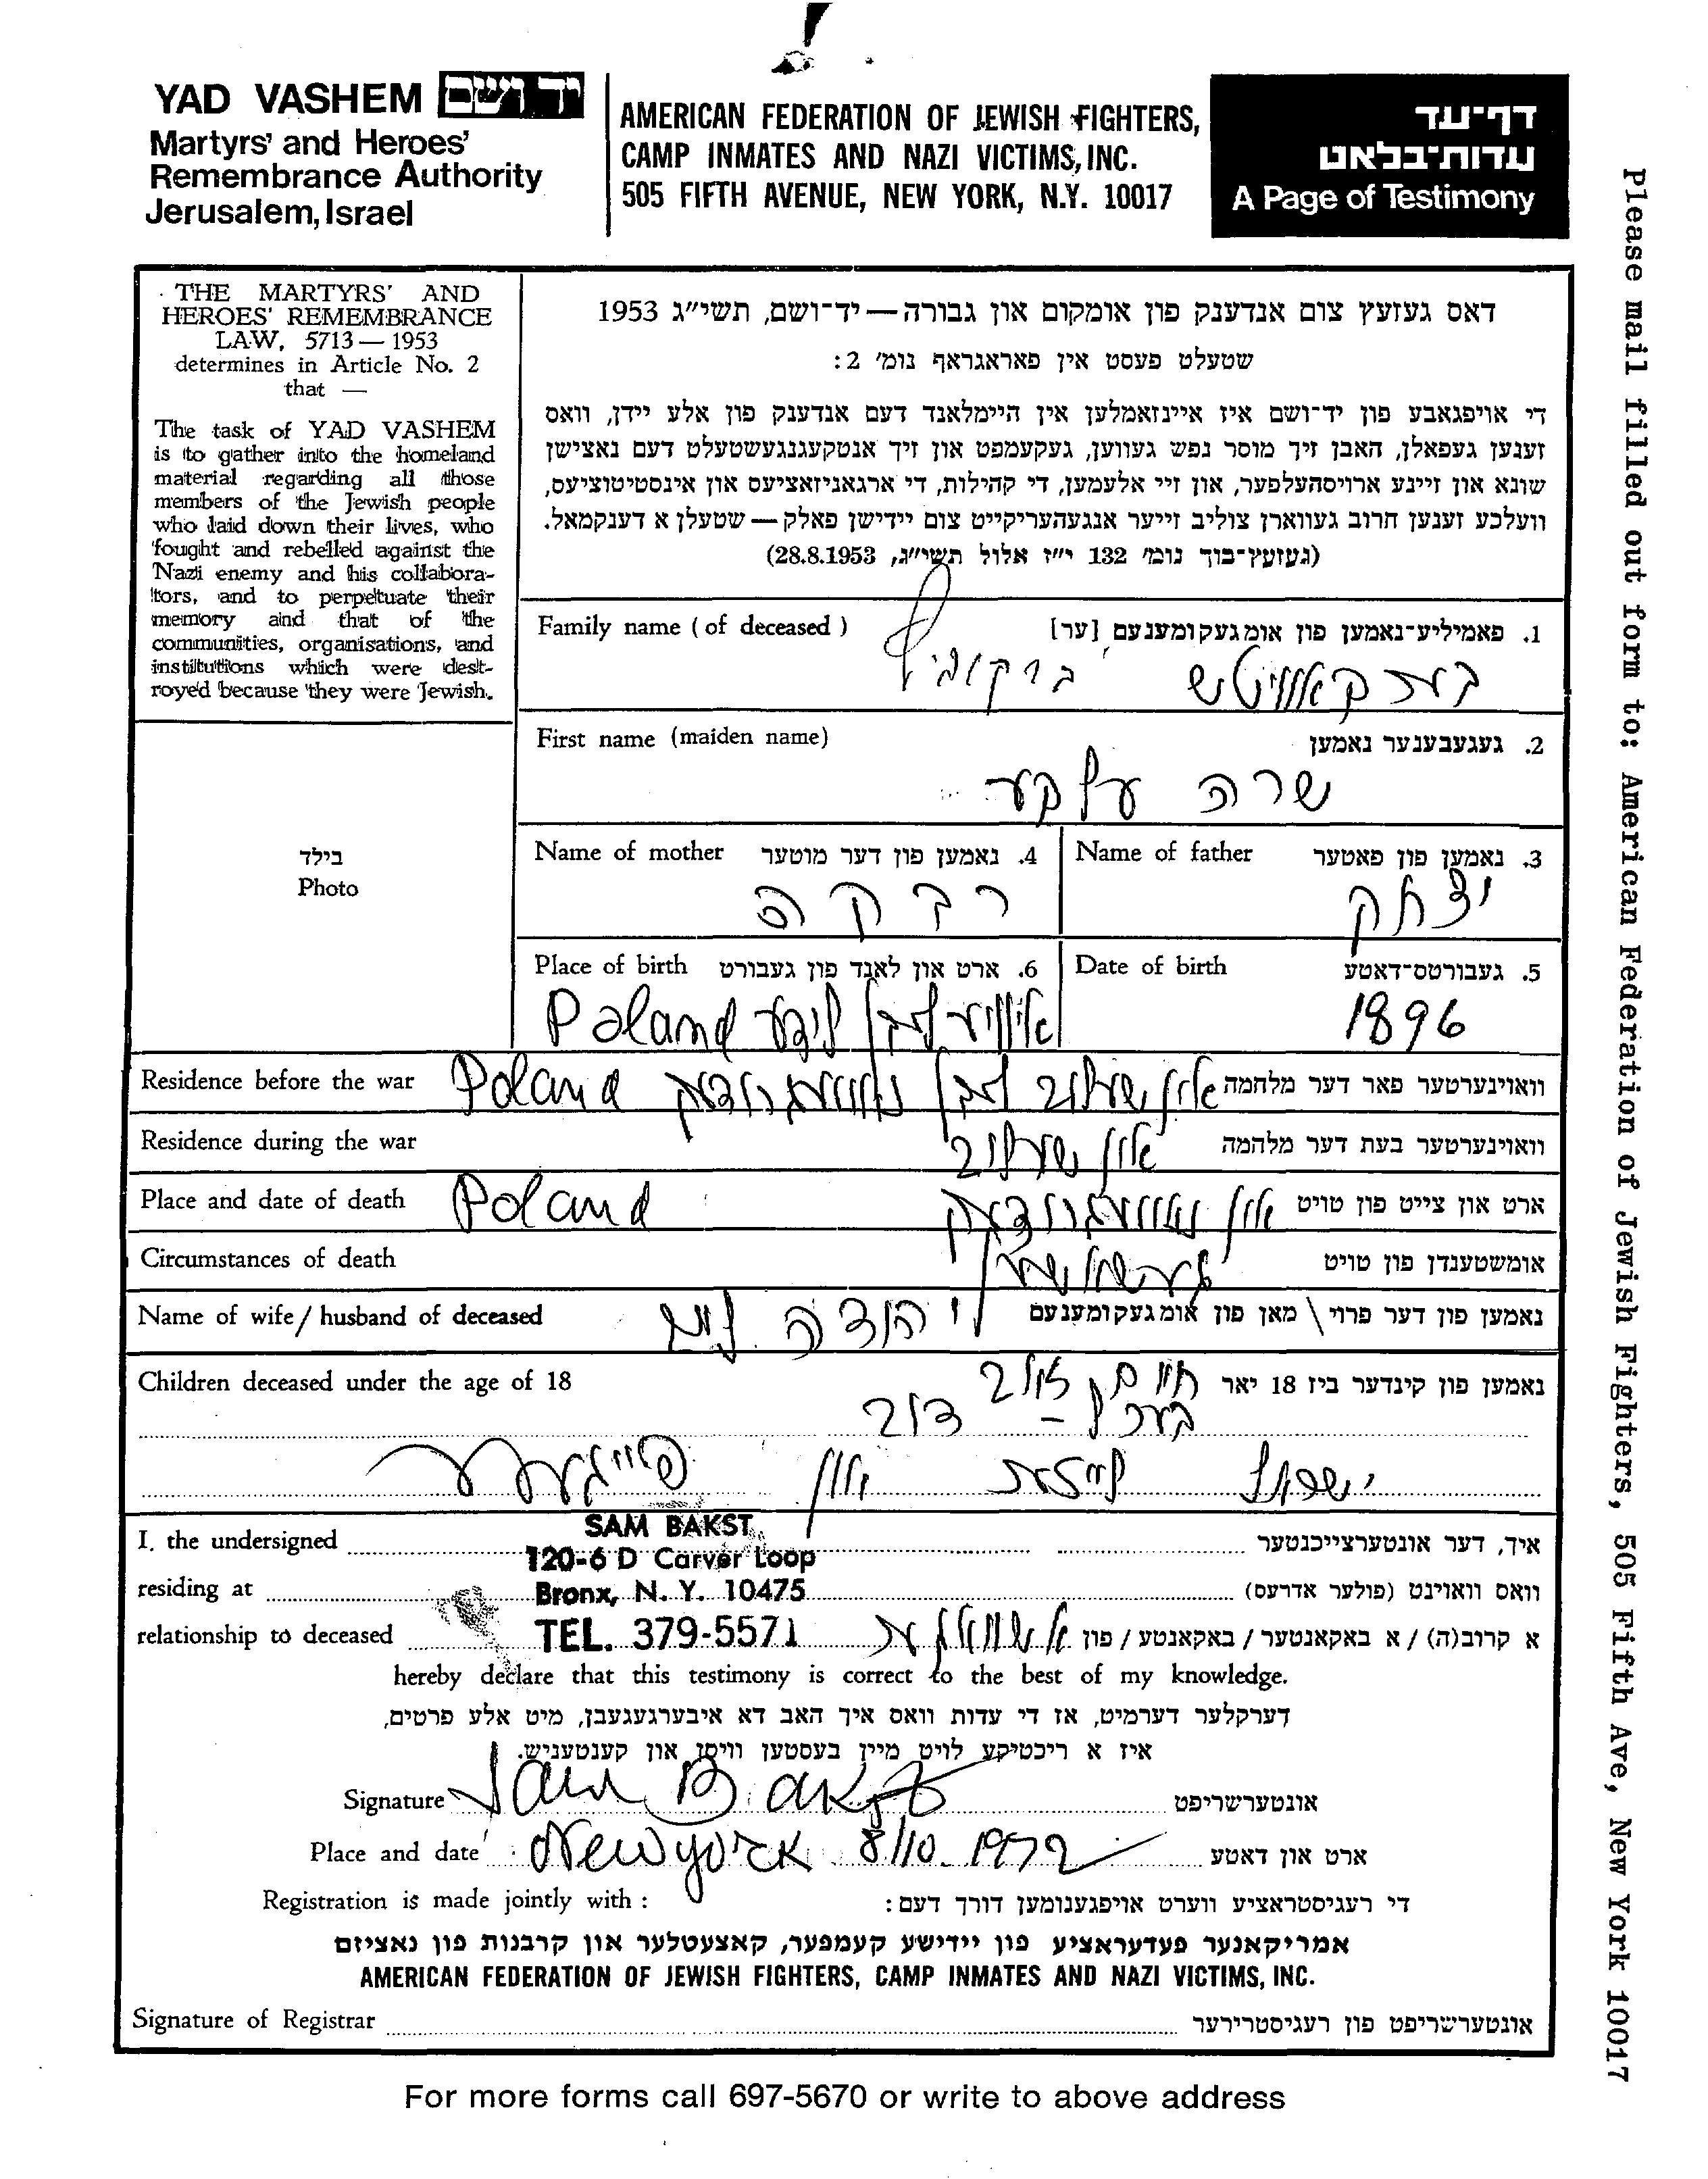 YAD VASHEM יד ושם
Martyrs' and Heroes'
Remembrance Authority
Jerusalem, Israel
AMERICAN FEDERATION OF JEWISH FIGHTERS,
CAMP INMATES AND NAZI VICTIMS, INC.
505 FIFTH AVENUE, NEW YORK, N.Y. 10017
דף־עד
עדות־בלאט
A Page of Testimony
THE MARTYRS' AND
HEROES' REMEMBRANCE
LAW, 5713 — 1953
determines in Article No. 2
that —
The task of YAD VASHEM
is to gather into the homeland
material regarding all those
members of the Jewish people
who laid down their lives, who
fought and rebelled against the
Nazi enemy and his collabora-
tors, and to perpetuate their
memory and that of the
communities, organisations, and
institutions which were dest-
royed because they were Jewish.
דאס געזעץ צום אנדענק פון אומקום און גבורה — יד־ושם, תשי״ג 1953
שטעלט פעסט אין פאראגראף נומ׳ 2:
די אויפגאבע פון יד־ושם איז איינזאמלען אין היימלאנד דעם אנדענק פון אלע יידן, וואס
זענען געפאלן, האבן זיך מוסר נפש געווען, געקעמפט און זיך אנטקעגנגעשטעלט דעם נאצישן
שונא און זיינע ארויסהעלפער, און זיי אלעמען, די קהילות, די ארגאניזאציעס און אינסטיטוציעס,
וועלכע זענען חרוב געווארן צוליב זייער אנגעהעריקייט צום יידישן פאלק — שטעלן א דענקמאל.
(געזעץ־בוך נומ׳ 132 י״ז אלול תשי״ג, 28.8.1953)
Family name (of deceased) 1. פאמיליע־נאמען פון אומגעקומענעם [ער]
בערקאוויטש ברקוביץ
First name (maiden name) 2. געגעבענער נאמען
שרה עלקע
בילד
Photo
Name of mother 4. נאמען פון דער מוטער Name of father 3. נאמען פון פאטער
רבקה יצחק
Place of birth 6. ארט און לאנד פון געבורט Date of birth 5. געבורטס־דאטע
Poland לידע 1896
Residence before the war Poland נאוואגרודעק וואוינערטער פאר דער מלחמה
Residence during the war וואוינערטער בעת דער מלחמה
Place and date of death Poland אין נאוואגרודעק ארט און צייט פון טויט
Circumstances of death אומשטענדן פון טויט
Name of wife / husband of deceased יהודה לייב נאמען פון דער פרוי \ מאן פון אומגעקומענעם
Children deceased under the age of 18 חיים נאמען פון קינדער ביז 18 יאר
דוב
I, the undersigned SAM BAKST איך, דער אונטערצייכנטער
120-6 D Carver Loop
residing at Bronx, N. Y. 10475 וואס וואוינט (פולער אדרעס)
relationship to deceased TEL. 379-5571 א קרוב(ה) / א באקאנטער / באקאנטע / פון
hereby declare that this testimony is correct to the best of my knowledge.
דערקלער דערמיט, אז די עדות וואס איך האב דא איבערגעגעבן, מיט אלע פרטים,
איז א ריכטיקע לויט מיין בעסטען וויסן און קענטעניש.
Signature Sam Bakst אונטערשריפט
Place and date New york 8/10. 1972 ארט און דאטע
Registration is made jointly with : די רעגיסטראציע ווערט אויפגענומען דורך דעם:
אמריקאנער פעדעראציע פון יידישע קעמפער, קאצעטלער און קרבנות פון נאציזם
AMERICAN FEDERATION OF JEWISH FIGHTERS, CAMP INMATES AND NAZI VICTIMS, INC.
Signature of Registrar אונטערשריפט פון רעגיסטרירער
For more forms call 697-5670 or write to above address
Please mail filled out form to: American Federation of Jewish Fighters, 505 Fifth Ave, New York 10017